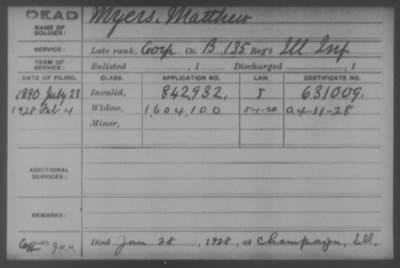 DEAD
NAME OF SOLDIER: Myers, Matthew
SERVICE: Late rank, Corp Co. B 135 Reg't Ill Inf
TERM OF SERVICE: Enlisted , 1 Discharged , 1
DATE OF FILING. CLASS. APPLICATION NO. LAW. CERTIFICATE NO.
1890 July 23 Invalid, 842932, 631009,
1928 Feb 4 Widow, 1,604,100 5-1-20 a4-11-28
Minor,
ADDITIONAL SERVICES:
REMARKS:
Died Jan 28, 1928, at Champaign, Ill,